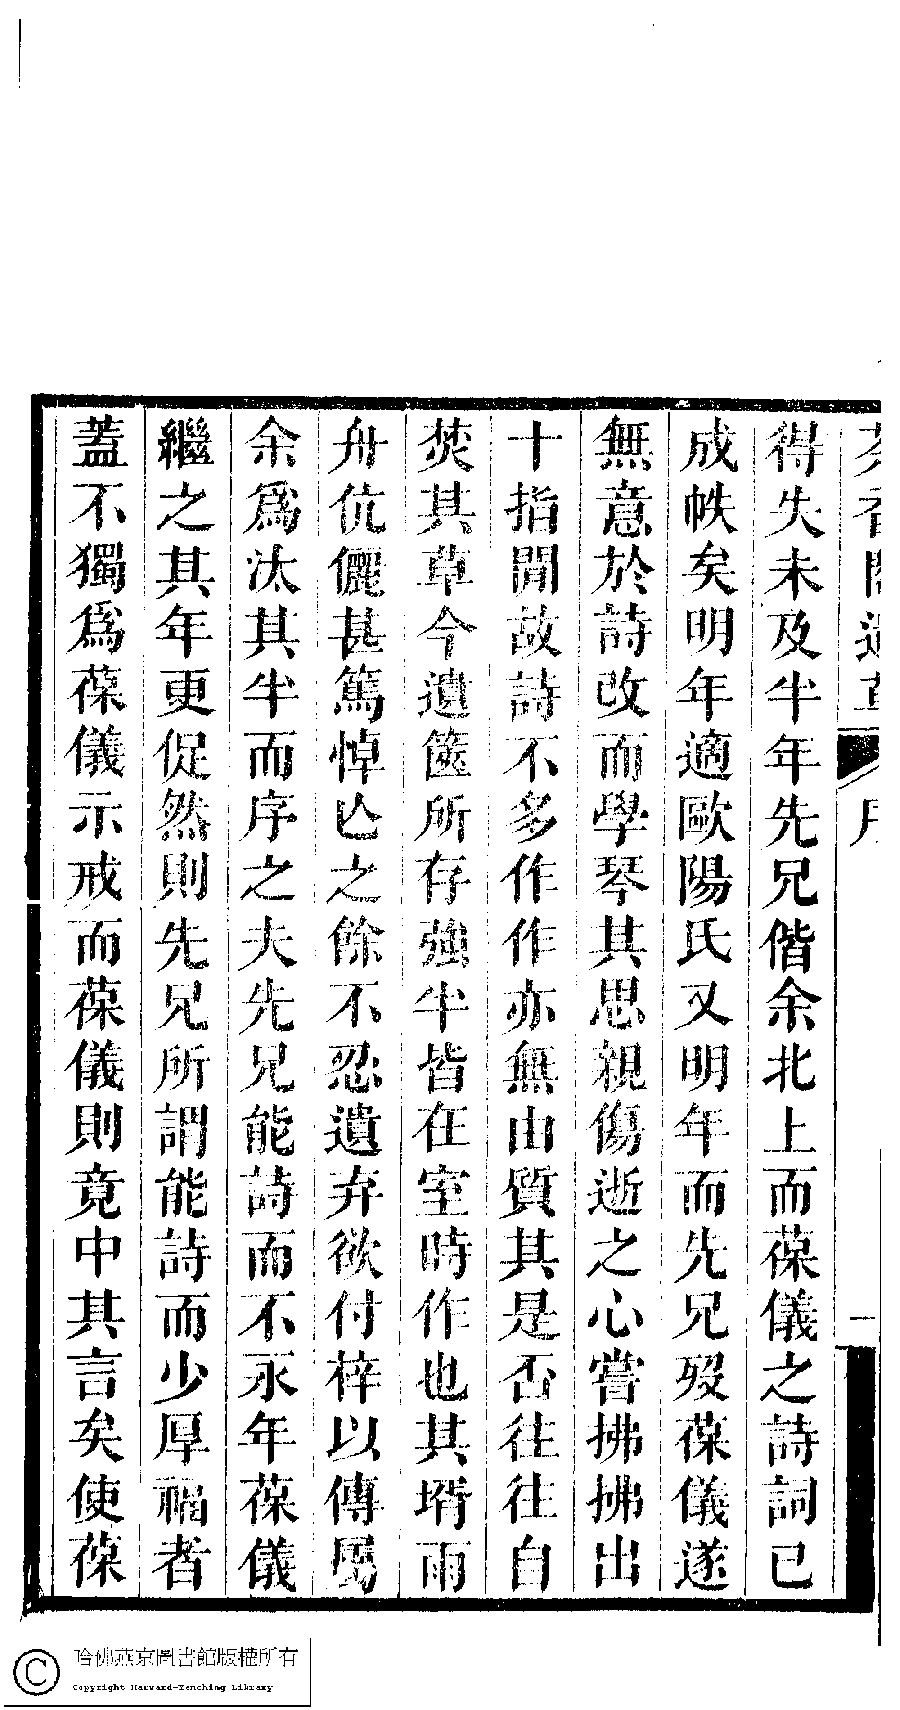 得失未及半年先兄偕余北上而葆儀之詩詞已
成帙矣明年適歐陽氏又明年而先兄歿葆儀遂
無意於詩改而學琴其思親傷逝之心嘗拂拂出
十指間故詩不多作作亦無由質其是否往往自
焚其草今遺篋所存強半皆在室時作也其壻雨
舟伉儷甚篤悼亾之餘不忍遺弃欲付梓以傳屬
余爲汰其半而序之夫先兄能詩而不永年葆儀
繼之其年更促然則先兄所謂能詩而少厚福者
蓋不獨爲葆儀示戒而葆儀則竟中其言矣使葆
哈佛燕京圖書館版權所有
Copyright Harvard-Yenching Library